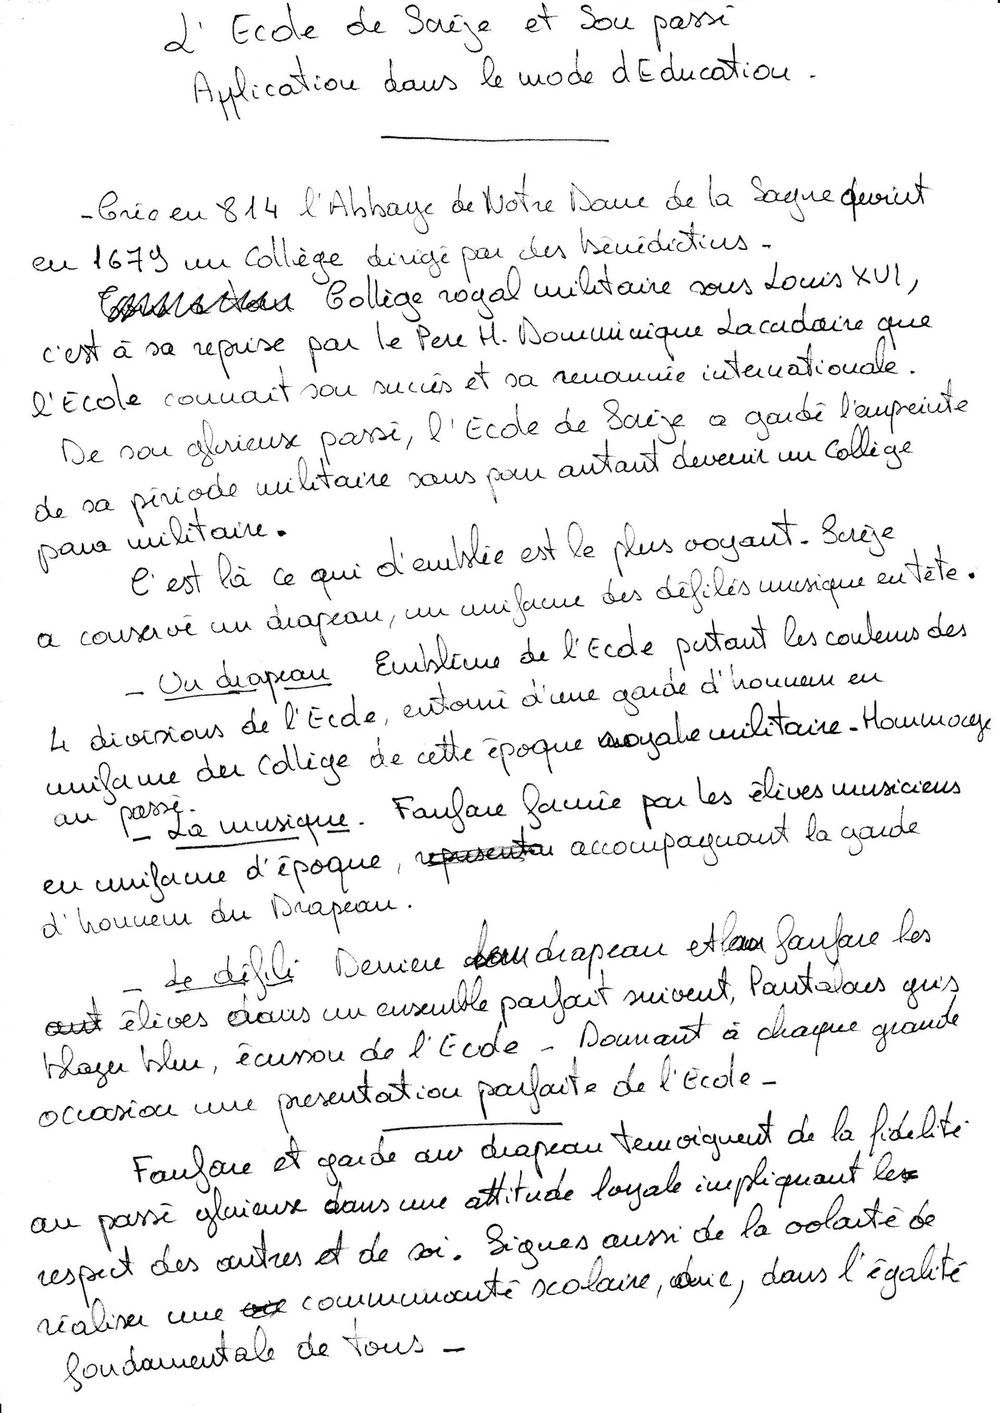 L'Ecole de Sorèze et Son passé
Application dans le mode d'Education.
- Créé en 814 l'Abbaye de Notre Dame de la Sagne devint
en 1679 un Collège dirigé par des bénédictins -
Collège royal militaire sous Louis XVI,
c'est à sa reprise par le Père H. Domminique Lacordaire que
l'Ecole connait son succès et sa renommée internationale.
De son glorieux passé, l'Ecole de Sorèze a gardé l'empreinte
de sa période militaire sans pour autant devenir un Collège
para militaire.
C'est là ce qui d'emblée est le plus voyant. Sorèze
a conservé un drapeau, un uniforme des défilés musique en tête.
- Un drapeau Emblème de l'Ecole portant les couleurs des
4 divisions de l'Ecole, entouré d'une garde d'honneur en
uniforme du Collège de cette époque royale militaire - Hommage
au passé.
- La musique. Fanfare formée par les élèves musiciens
en uniforme d'époque, accompagnant la garde
d'honneur du Drapeau.
- Le défilé Derrière drapeau et fanfare les
élèves dans un ensemble parfait suivent, Pantalons gris
blazer bleu, écusson de l'Ecole - Donnant à chaque grande
occasion une présentation parfaite de l'Ecole -
Fanfare et garde au drapeau temoignent de la fidélité
au passé glorieux dans une attitude loyale impliquant le
respect des autres et de soi. Signes aussi de la volonté de
réaliser une communauté scolaire, unie, dans l'égalité
fondamentale de tous -